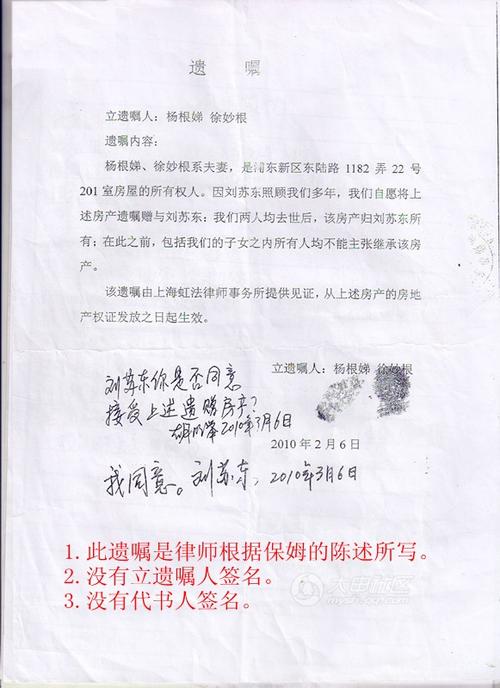 遗 嘱
立遗嘱人：杨根娣 徐妙根
遗嘱内容：
杨根娣、徐妙根系夫妻，是浦东新区东陆路 1182 弄 22 号
201 室房屋的所有权人。因刘苏东照顾我们多年，我们自愿将上
述房产遗嘱赠与刘苏东：我们两人均去世后，该房产归刘苏东所
有；在此之前，包括我们的子女之内所有人均不能主张继承该房
产。
该遗嘱由上海虹法律师事务所提供见证，从上述房产的房地
产权证发放之日起生效。
立遗嘱人：杨根娣 徐妙根
刘苏东你是否同意
接受上述遗赠房产？
2010年3月6日
2010 年 2 月 6 日
我同意。刘苏东，2010年3月6日
1. 此遗嘱是律师根据保姆的陈述所写。
2. 没有立遗嘱人签名。
3. 没有代书人签名。